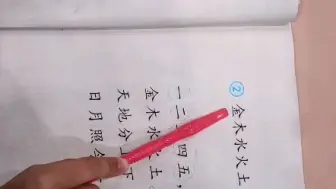 ② 金木水火土
一二四五，
金木水火土
天地分上下
日月照今